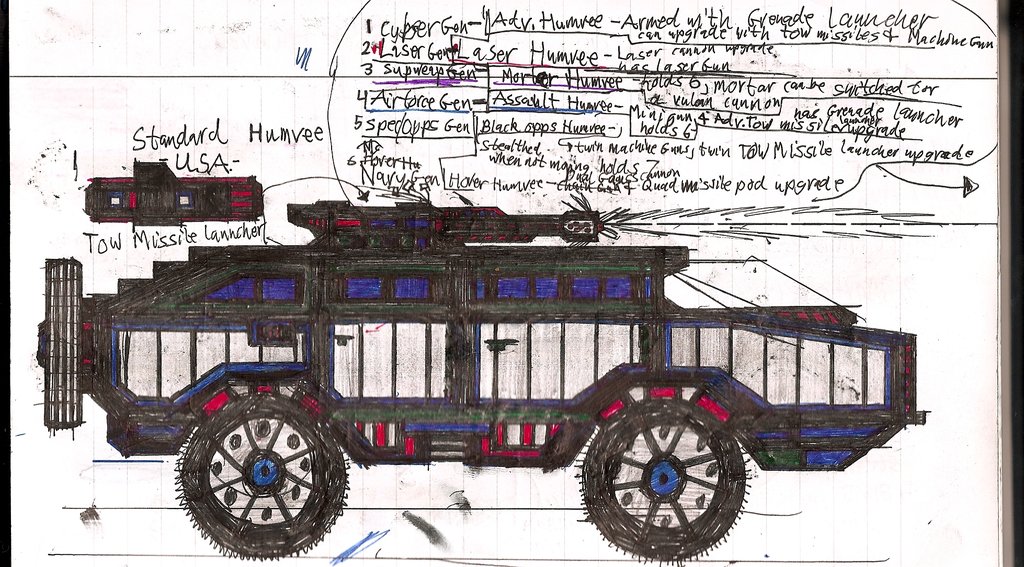 1 Cyber Gen - Adv. Humvee - Armed with Grenade launcher
can upgrade with tow missiles & Machine Gun
2 Laser Gen Laser Humvee - Laser cannon upgrade,
has laser Gun
3 supweap Gen - Mortor Humvee - holds 6, mortar can be switched for
a vulcan cannon
4 Airforce Gen = Assault Humvee - has Grenade launcher
Mini Gun & Adv. Tow missile launcher upgrade
holds 6
5 spec opps Gen Black opps Humvee -
Stealthed twin machine Guns, twin TOW Missile launcher upgrade
when not moving, holds 7
6
Navy Gen Hover Humvee - Quad missile pod upgrade
Standard Humvee
- USA -
1
Tow Missile launcher